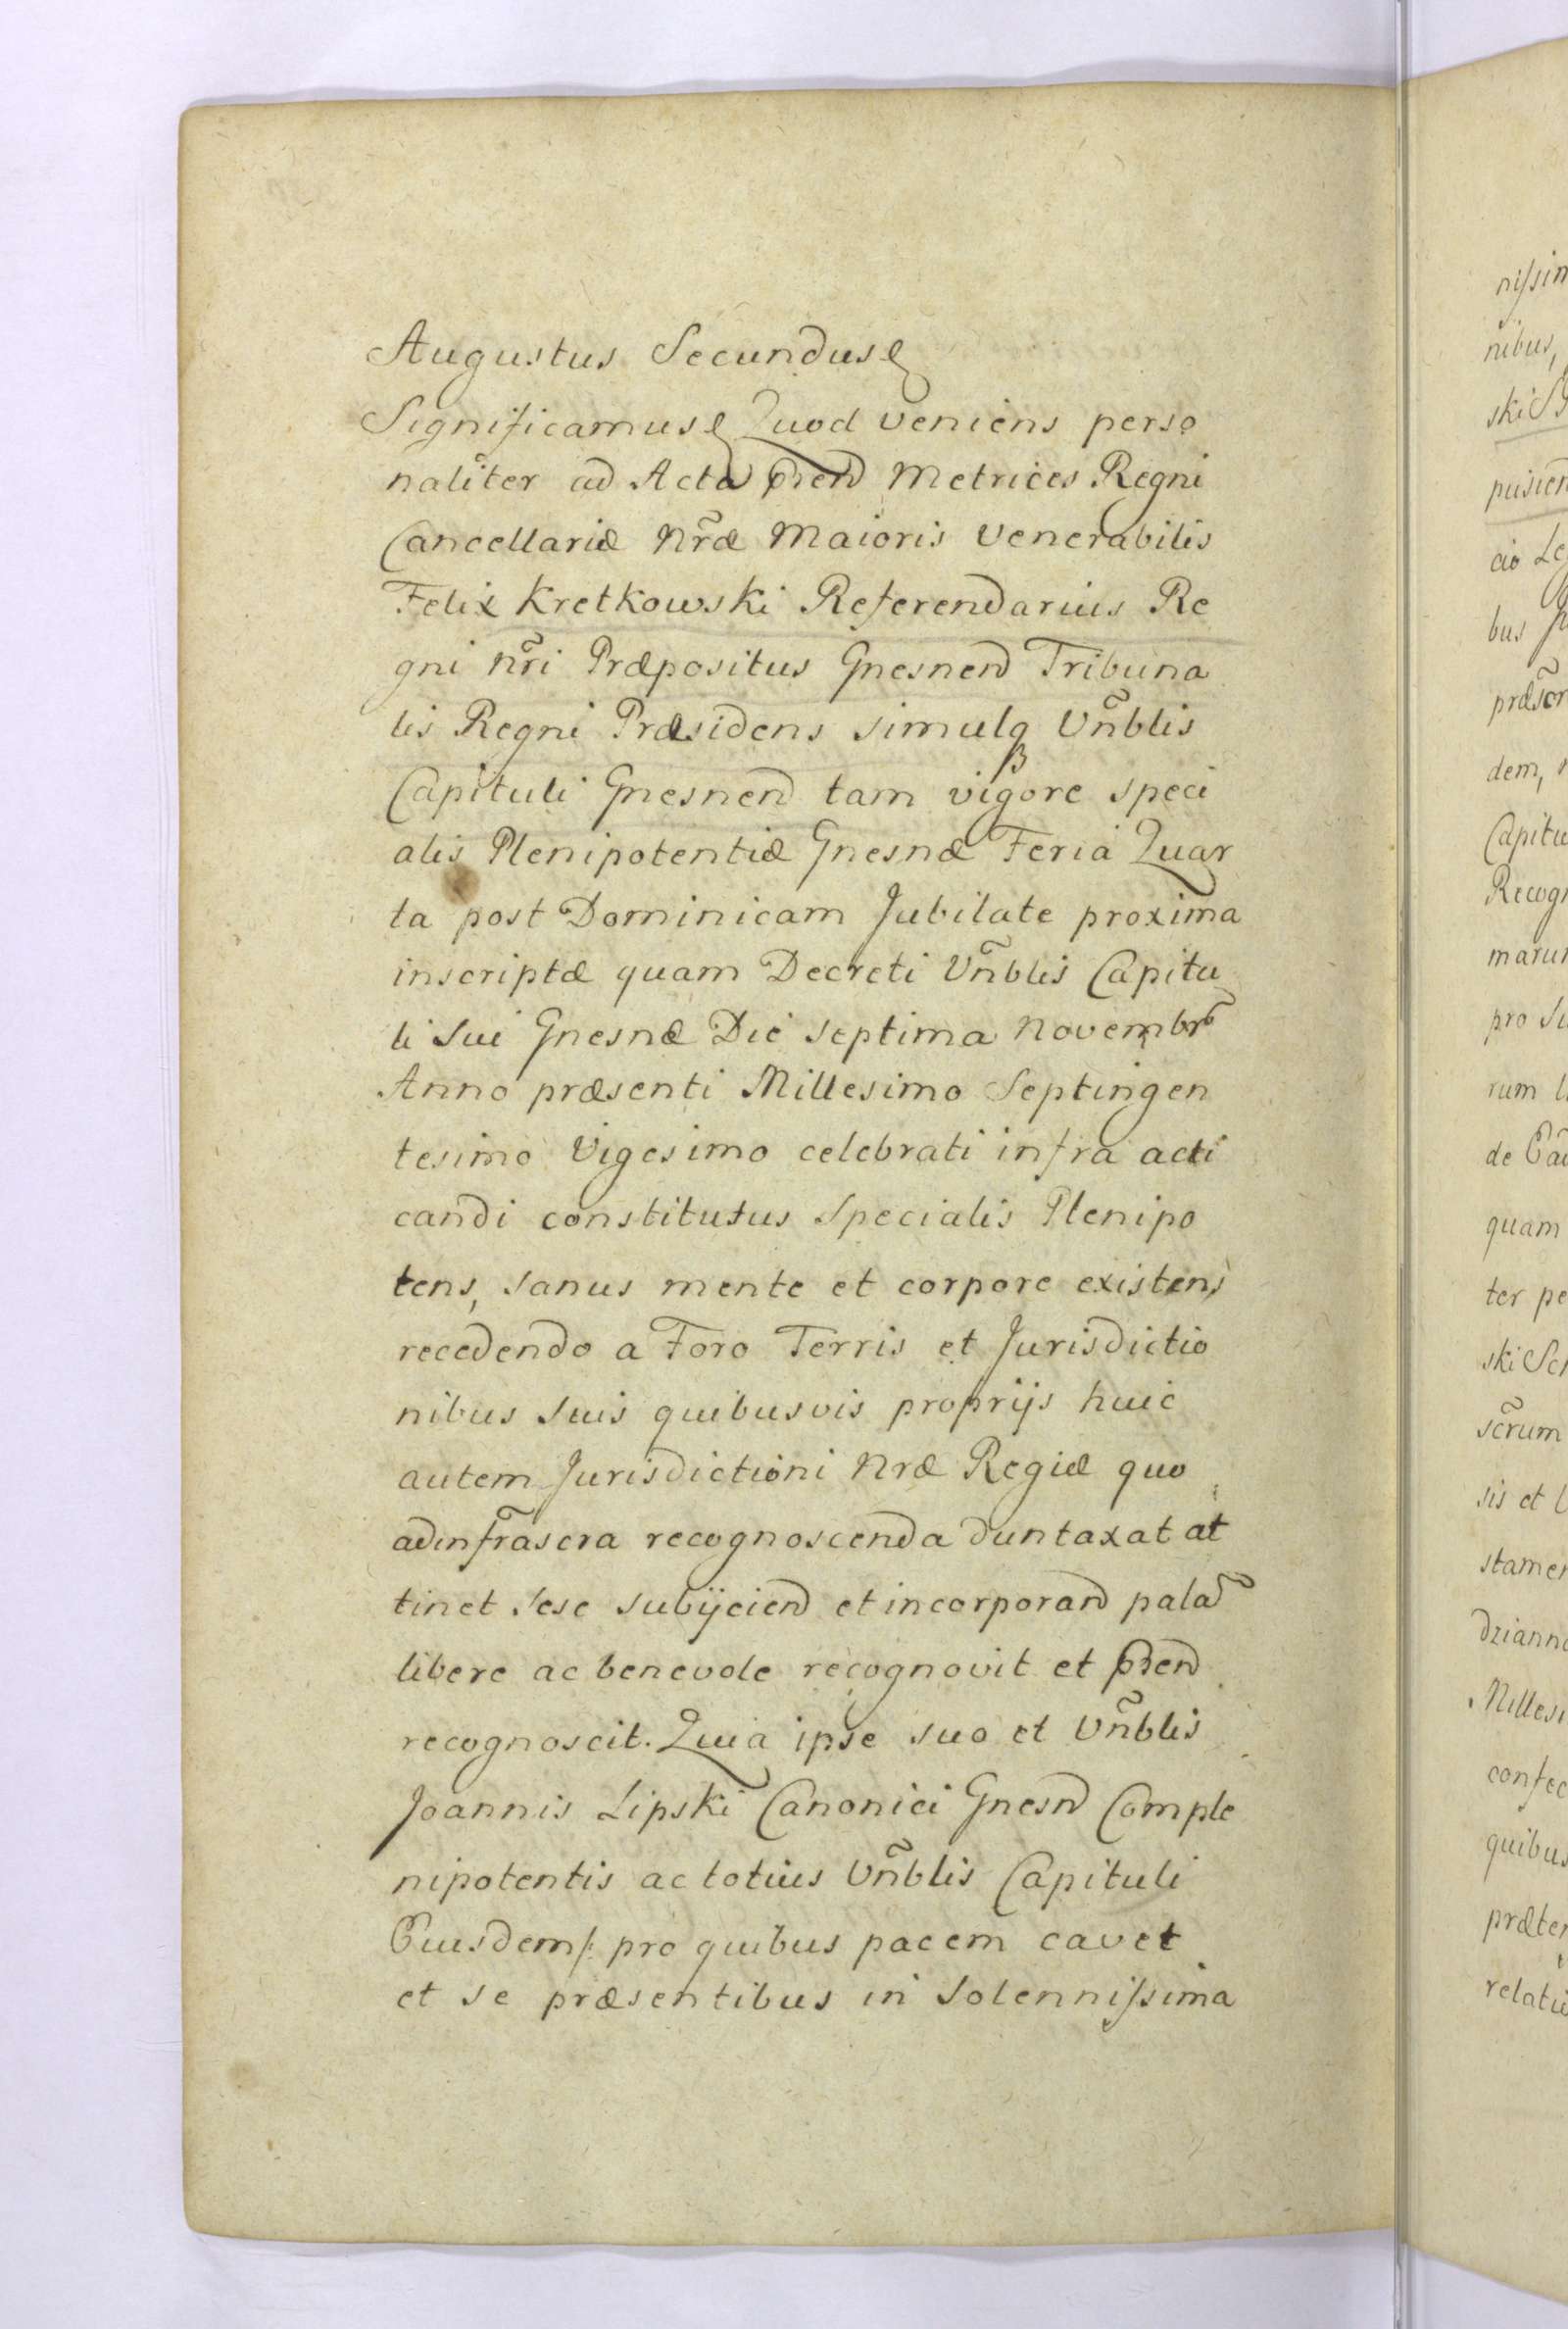 Augustus Secundus
Significamus Quod veniens perso
naliter ad Acta p̃rend Metrices Regni
Cancellariæ Nr̃æ Maioris Venerabilis
Felix Kretkowski Referendarius Re
gni Nr̃i Præpositus Gnesnen Tribuna
lis Regni Præsidens simulq Vñblis
Capituli Gnesnen tam vigore speci
alis Plenipotentiæ Gnesnæ Feria Quar
ta post Dominicam Jubilate proxima
inscriptæ quam Decreti Vñblis Capitu
li Sui Gnesnæ Die Septima Novembr
Anno præsenti Millesimo Septingen
tesimo Vigesimo celebrati infra acti
candi constitutus Specialis Plenipo
tens, sanus mente et corpore existens
recedendo a Foro Terris et Jurisdictio
nibus Suis quibusvis proprijs huic
autem Jurisdictioni Nræ Regiæ quo
ad infrãscra recognoscenda duntaxat at
tinet Sese subijcien et incorporan palã
libere ac benevole recognovit et p̃ren
recognoscit. Quia ipse suo et Vñblis
Joannis Lipski Canonici Gnesn Comple
nipotentis ac totius Vñblis Capituli
Eiusdem /: pro quibus pacem cavet
et se præsentibus in Solennissima
nissim
nibus,
ski
cio
bus
dem,
Capitu
Recogn
marum
pro
rum
de
quam
ter pe
ski
scr̃um
sis et
stamen
dzianno
Millesi
confec
quibus
præter
relati